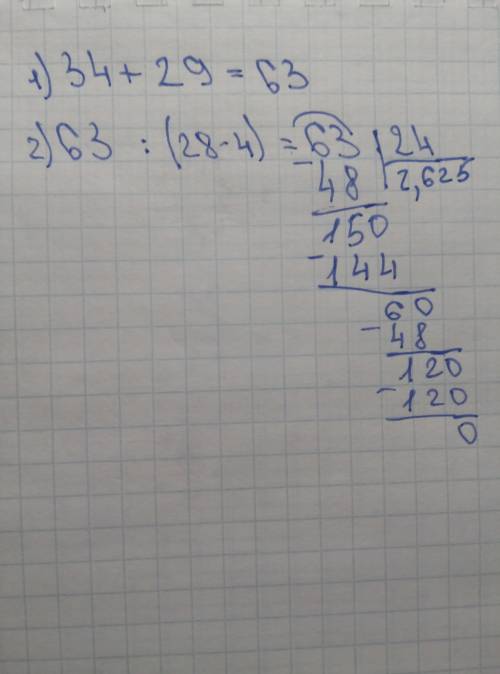 1) 34 + 29 = 63
2) 63 : (28 - 4) = 63 | 24
- 48 | 2,625
150
- 144
60
- 48
120
- 120
0